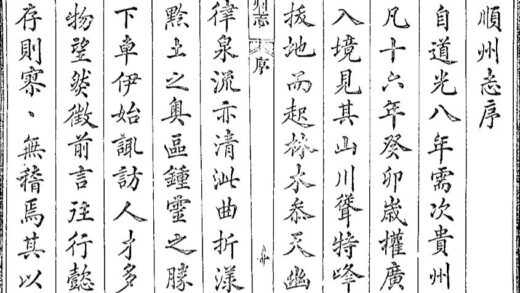 順州志序
自道光八年需次貴州
凡十六年癸卯歲權廣
入境見其山川聳特峰
拔地而起林木參天幽
州志 序
律泉流亦清泚曲折漾
黔土之奥區鍾靈之勝
下車伊始諏訪人才多
物望然徵前言往行懿
存則寥、無稽焉其以